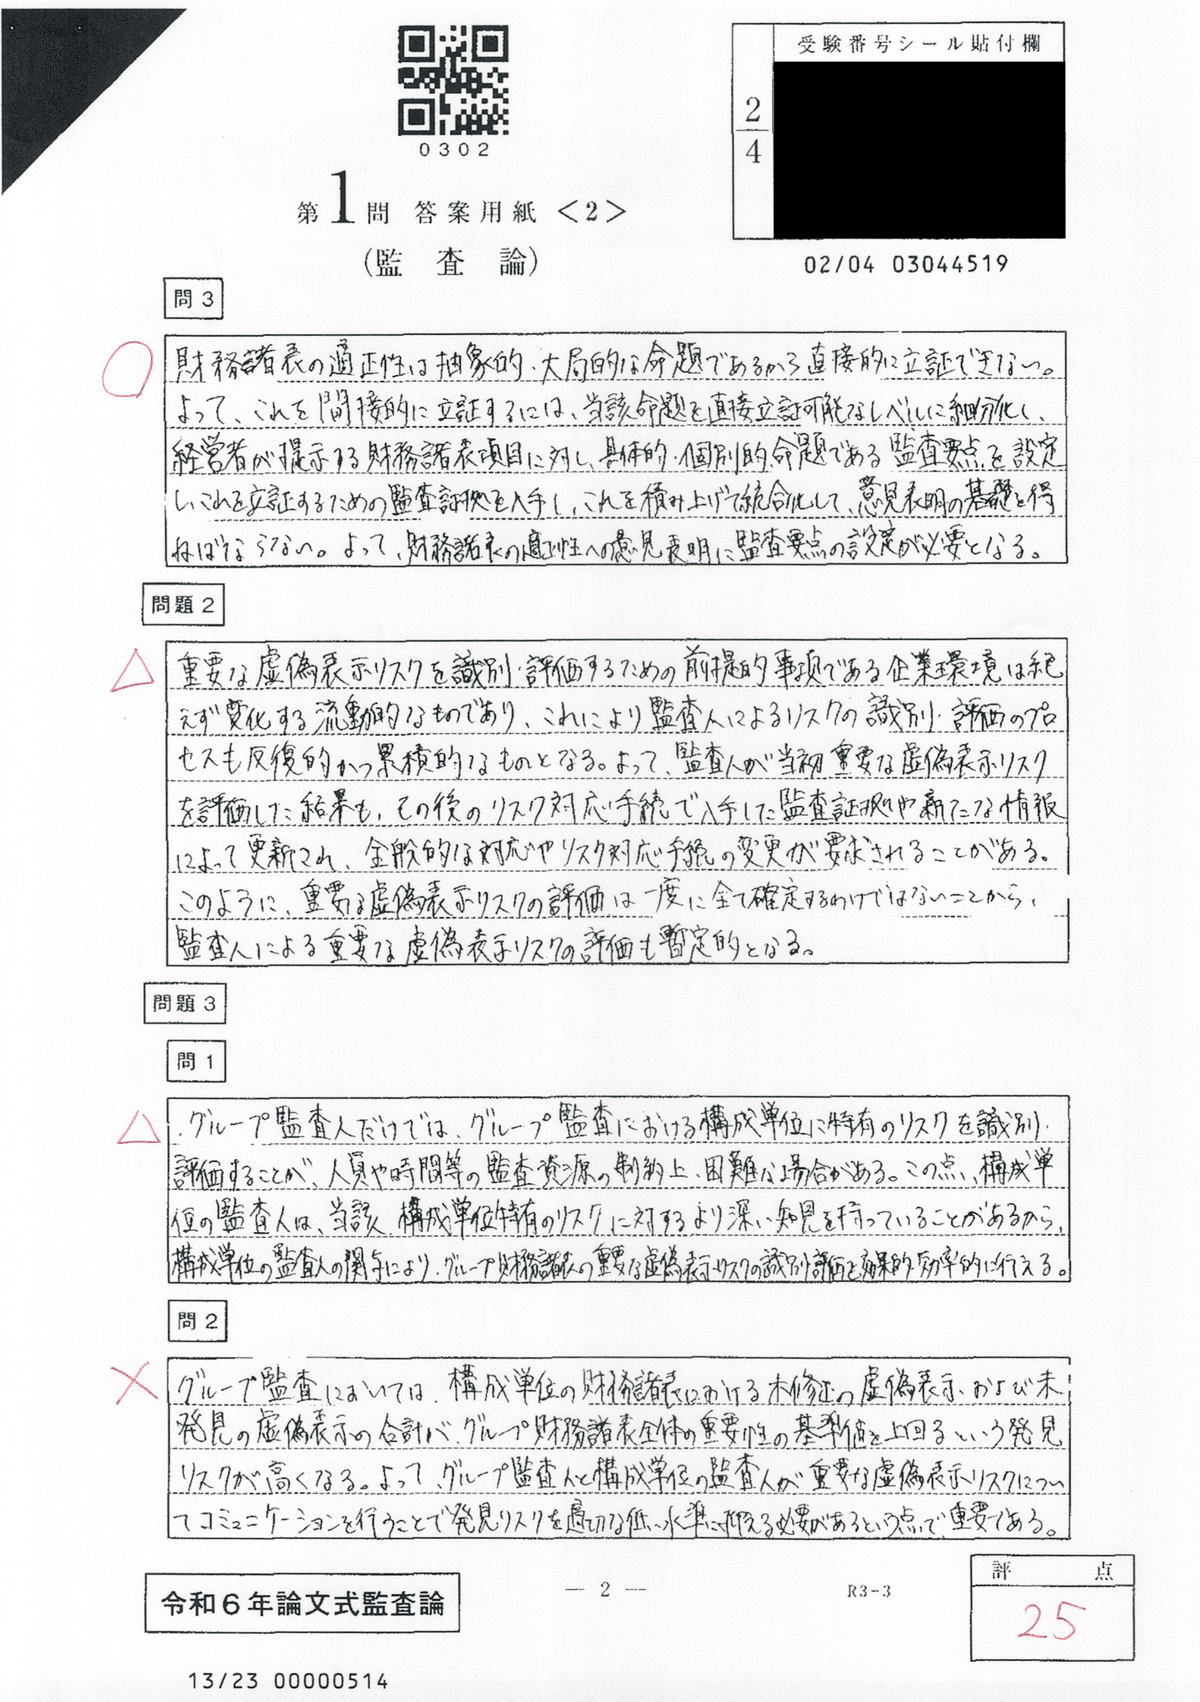 0302
受験番号シール貼付欄
2
4
第1問 答案用紙<2>
(監査論)
02/04 03044519
問3
財務諸表の適正性は抽象的・大局的な命題であるから直接的に立証できない。
よって、これを間接的に立証するには、当該命題を直接立証可能なレベルに細分化し、
経営者が提示する財務諸表項目に対し、具体的・個別的命題である監査要点を設定
し、これを立証するための監査証拠を入手し、これを積み上げて統合化して、意見表明の基礎を得
ねばならない。よって、財務諸表の適正性への意見表明に監査要点の設定が必要となる。
問題2
重要な虚偽表示リスクを識別・評価するための前提的事項である企業環境は絶
えず変化する流動的なものであり、これにより監査人によるリスクの識別・評価のプロ
セスも反復的かつ累積的なものとなる。よって、監査人が当初重要な虚偽表示リスク
を評価した結果も、その後のリスク対応手続で入手した監査証拠や新たな情報
によって更新され、全般的な対応やリスク対応手続の変更が要求されることがある。
このように、重要な虚偽表示リスクの評価は一度に全て確定するわけではないことから、
監査人による重要な虚偽表示リスクの評価も暫定的となる。
問題3
問1
グループ監査人だけでは、グループ監査における構成単位に特有のリスクを識別・
評価することが、人員や時間等の監査資源の制約上、困難な場合がある。この点、構成単
位の監査人は、当該構成単位特有のリスクに対するより深い知見を持っていることがあるから、
構成単位の監査人の関与により、グループ財務諸表の重要な虚偽表示リスクの識別・評価を効果的・効率的に行える。
問2
グループ監査においては、構成単位の財務諸表における未修正の虚偽表示および未
発見の虚偽表示の合計が、グループ財務諸表全体の重要性の基準値を上回るという発見
リスクが高くなる。よって、グループ監査人と構成単位の監査人が重要な虚偽表示リスクについ
てコミュニケーションを行うことで発見リスクを適切な低い水準に抑える必要があるという点で重要である。
令和6年論文式監査論
― 2 ―
R3-3
評点
25
13/23 00000514